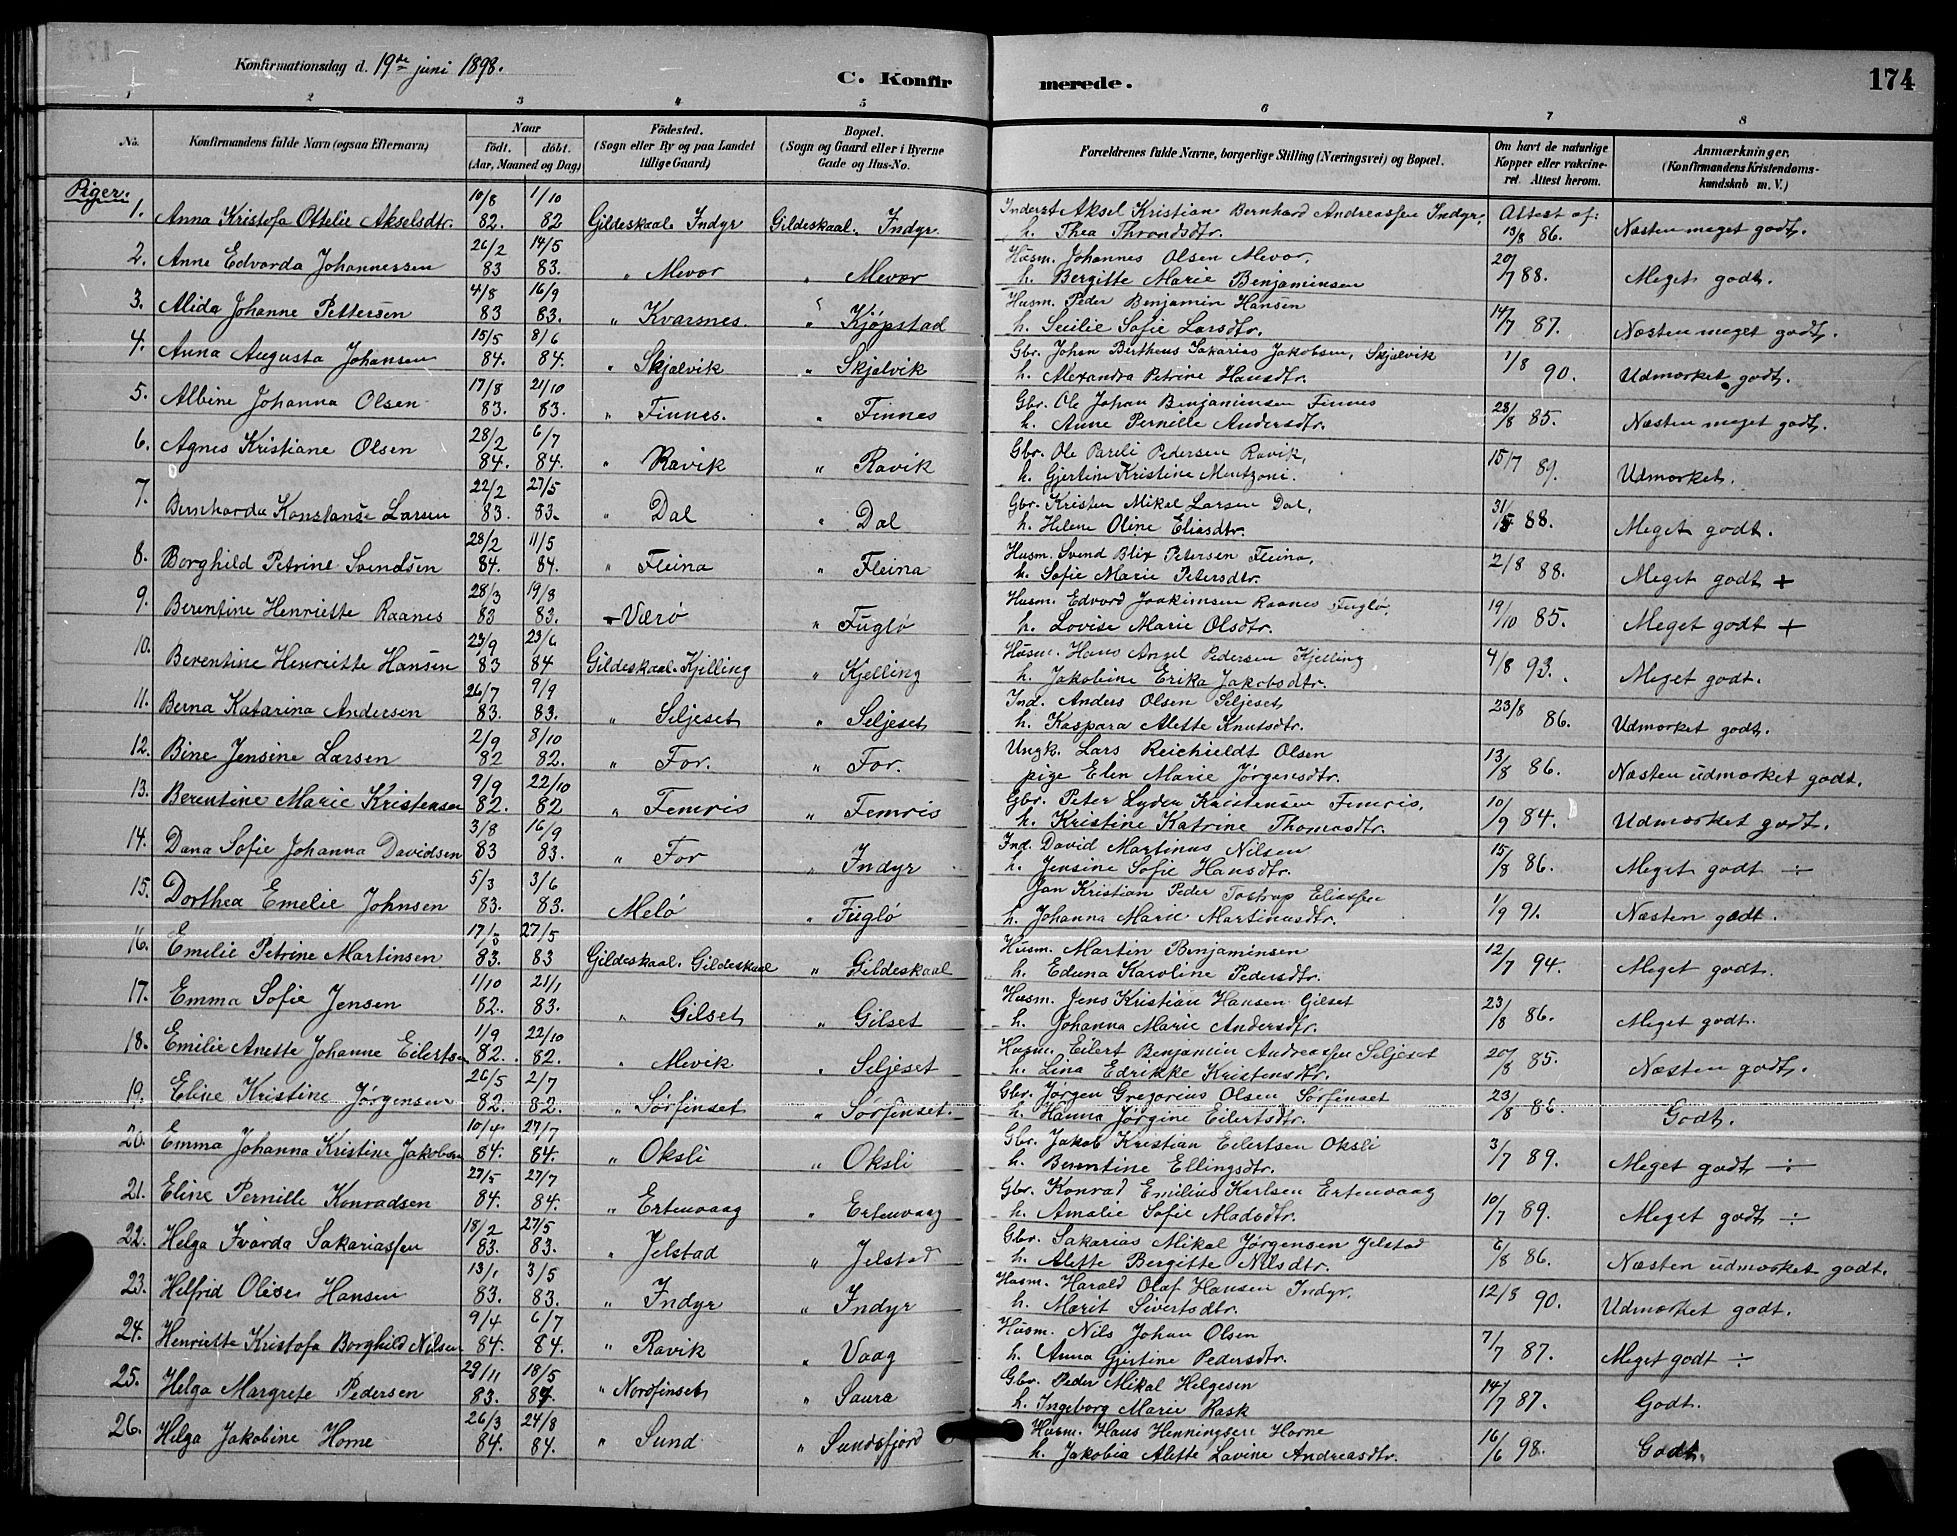 Konfirmationsdag d. 19de juni 1898.
C. Konfirmerede.
174
1 2 3 4 5 6 7 8
No.
Konfirmandens fulde Navn (ogsaa Efternavn)
Naar
födt. döbt.
(Aar, Maaned og Dag)
Födested.
(Sogn eller By og paa Landet tillige Gaard)
Bopæl.
(Sogn og Gaard eller i Byerne Gade og Hus-No.
Forældrenes fulde Navne, borgerlige Stilling (Næringsvei) og Bopæl.
Om havt de naturlige Kopper eller vakcineret. Attest herom.
Anmærkninger.
(Konfirmandens Kristendomskundskab m. V.)
Piger.
1. Anna Kristofa Ottelie Akselsdtr. 10/8 82. 1/10 82 Gildeskaal Indyr Gildeskaal. Indyr. Inderst Aksel Kristian Bernhard Andreassen Indyr, h. Thea Throndsdtr. Attest af: 13/8 86. Næsten meget godt.
2. Anne Edvarda Johannessen 26/2 83 14/5 83. " Mevær " Mevær Husm. Johannes Olsen Mevær, h. Bergitte Marie Benjaminsen 20/7 88. Meget godt.
3. Alida Johanne Pettersen 4/8 83 16/9 83. " Kvarsnes. " Kjøpstad Husm. Peder Benjamin Hansen h. Secilie Sofie Larsdtr. 14/7 87. Næsten meget godt.
4. Anna Augusta Johansen 15/5 84. 8/6 84. " Skjælvik " Skjælvik Gbr. Johan Bertheus Sakarias Jakobsen, Skjælvik h. Alexandra Petrine Hansdtr. 1/8 90. Udmærket godt.
5. Albine Johanna Olsen 17/8 83. 21/10 83. " Finnes. " Finnes Gbr. Ole Johan Benjaminsen Finnes h. Anne Pernille Andersdtr. 28/8 85. Næsten meget godt.
6. Agnes Kristiane Olsen 28/2 84. 6/7 84. " Ravik " Ravik Gbr. Ole Pareli Pedersen Ravik, h. Gjertine Kristine Mentzoni. 15/7 89. Udmærket.
7. Bernharda Konstanse Larsen 22/2 83. 27/5 83. " Dal " Dal Gbr. Kristen Mikal Larsen Dal, h. Helene Oline Eliasdtr. 31/5 88. Meget godt.
8. Borghild Petrine Svendsen 28/2 84. 11/5 84. " Fleina " Fleina Husm. Svend Blix Petersen Fleina, h. Sofie Marie Petersdtr. 2/8 88. Meget godt +
9. Berentine Henriette Raanes 28/3 83 19/8 83. Værø " Fuglø Husm. Edvard Joakimsen Raanes Fuglø, h. Lovise Marie Olsdtr. 19/10 85. Meget godt +
10. Berentine Henriette Hansen 23/9 83 23/6 84 Gildeskaal. Kjelling " Kjelling Husm. Hans Angel Pedersen Kjelling h. Jakobine Erika Jakobsdtr. 4/8 93. Meget godt.
11. Berna Katarina Andersen 26/7 83. 9/9 83. " Seljeset " Seljeset Ind. Anders Olsen Seljeset, h. Kaspara Alette Knutsdtr. 23/8 86. Udmærket godt.
12. Bine Jensine Larsen 2/9 82 8/10 82. " For. " For. Ungk. Lars Reichieldt Olsen pige Elen Marie Jørgensdtr. 13/8 86. Næsten udmærket godt.
13. Berentine Marie Kristensen 9/9 82. 22/10 82 " Femris " Femris Gbr. Peter Lyder Kristensen Femris, h. Kristine Katrine Thomasdtr. 10/9 84. Udmærket godt.
14. Dana Sofie Johanna Davidsen 3/8 83 16/9 83. " For " Indyr Ind. David Martinus Nilsen h. Jensine Sofie Hansdtr. 15/8 86. Meget godt ÷
15. Dorthea Emelie Johnsen 5/3 83. 3/6 83. Melö " Fuglø Jan Kristian Peder Tostrup Eliassen h. Johanna Marie Martinusdtr. 1/9 91. Næsten godt.
16. Emelie Petrine Martinsen 17/3 83. 27/5 83 Gildeskaal. Gildeskaal " Gildeskaal Husm. Martin Benjaminsen h. Eduna Karoline Pedersdtr. 12/7 94. Meget godt.
17. Emma Sofie Jensen 1/10 82. 21/1 83. " Gilset " Gilset Husm. Jens Kristian Hansen Gilset h. Johanna Marie Andersdtr. 23/8 86. Meget godt.
18. Emilie Anette Johanne Eilertsen 1/9 82. 22/10 82. " Mevik " Seljeset Husm. Eilert Benjamin Andreassen Seljeset h. Lina Edrikke Kristensdtr. 20/8 85. Næsten godt.
19. Eline Kristine Jørgensen 26/5 82. 2/7 82. " Sørfinset " Sørfinset. Gbr. Jørgen Gregorius Olsen Sørfinset h. Hanna Jørgine Eilertsdtr. 23/8 86. Godt.
20. Emma Johanna Kristine Jakobsen 10/4 84. 27/7 84. " Oksli " Oksli Gbr. Jakob Kristian Eilertsen Oksli h. Berentine Ellingsdtr. 3/7 89. Meget godt ÷
21. Eline Pernille Konradsen 27/5 84. 27/7 84. " Ertenvaag " Ertenvaag Gbr. Konrad Emilius Karlsen Ertenvaag h. Amalie Sofie Madsdtr. 10/7 89. Meget godt ÷
22. Helga Ivarda Sakariassen 18/2 83. 27/5 83. " Jelstad " Jelstad Gbr. Sakarias Mikal Jørgensen Jelstad h. Alette Bergitte Nilsdtr. 6/8 86. Næsten udmærket godt.
23. Helfrid Olise Hansen 13/1 83. 3/5 83. " Indyr " Indyr Husm. Harald Olaf Hansen Indyr. h. Marit Sivertsdtr. 12/8 90. Udmærket godt.
24. Henriette Kristofa Borghild Nilsen 9/4 84. 6/7 84. " Ravik " Vaag Husm. Nils Johan Olsen h. Anna Gjertine Pedersdtr. 7/7 87. Meget godt ÷
25. Helga Margrete Pedersen 29/11 83. 18/5 84. " Nordfinset " Saura Gbr. Peder Mikal Helgesen h. Ingeborg Marie Rask 14/7 87. Godt.
26. Helga Jakobine Horne 26/3 84. 24/8 84. " Sund " Sundsfjord Husm. Hans Henningsen Horne h. Jakobia Alette Lavine Andreasdtr. 16/6 98. Godt.